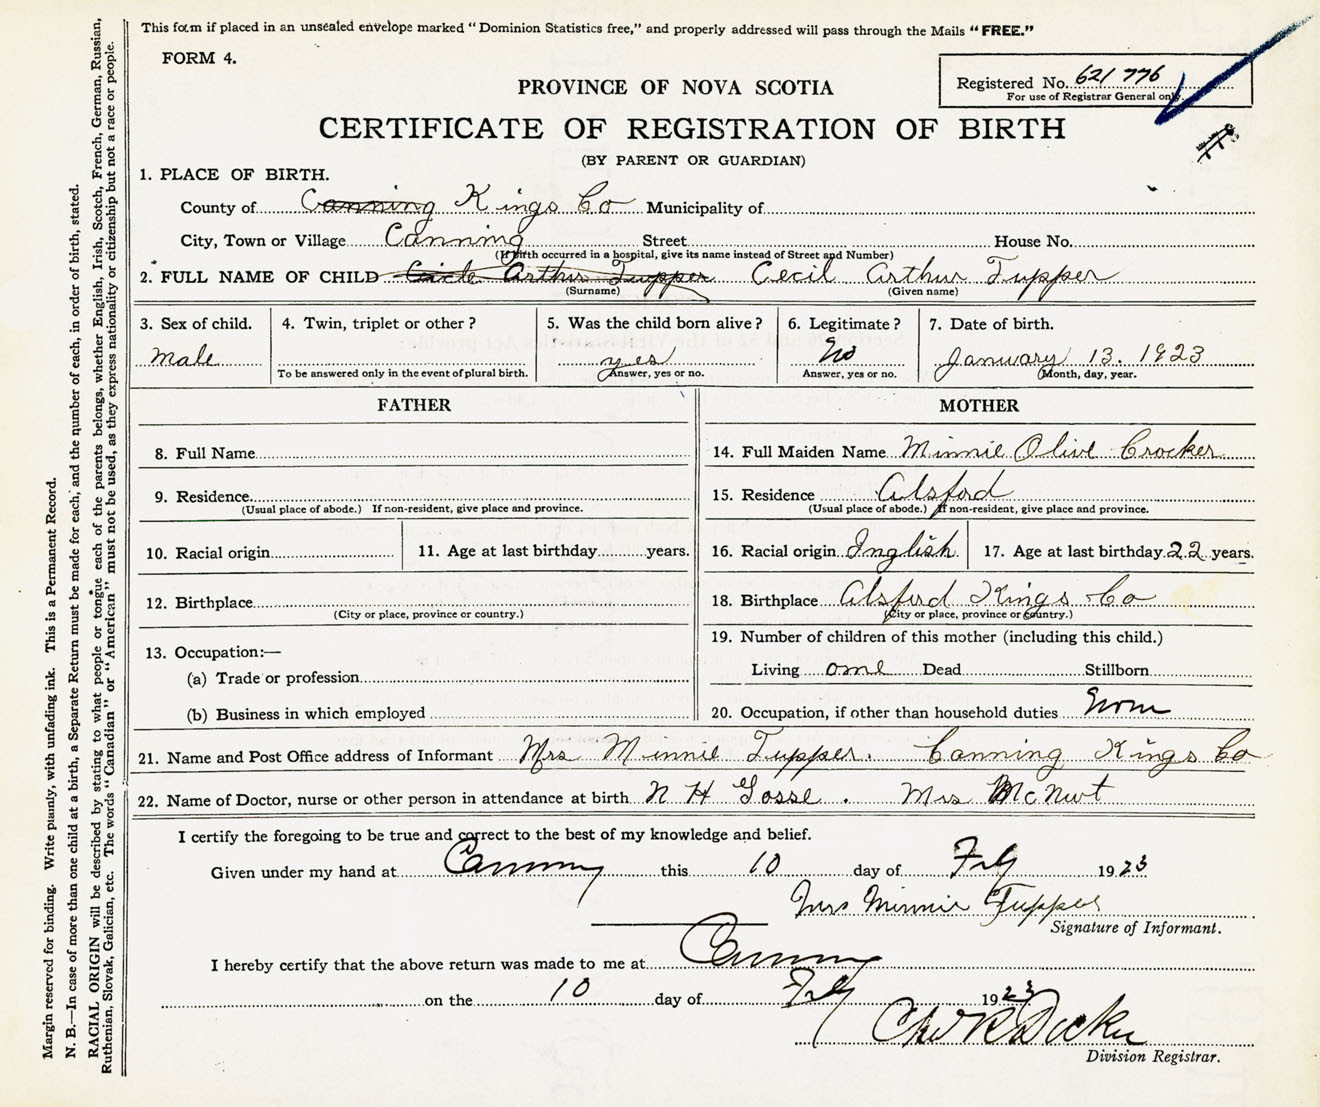 This form if placed in an unsealed envelope marked "Dominion Statistics free," and properly addressed will pass through the Mails "FREE."
FORM 4.
Registered No. 621 776
For use of Registrar General only.
PROVINCE OF NOVA SCOTIA
CERTIFICATE OF REGISTRATION OF BIRTH
(BY PARENT OR GUARDIAN)
1. PLACE OF BIRTH.
County of Canning Kings Co Municipality of
City, Town or Village Canning Street House No.
(If birth occurred in a hospital, give its name instead of Street and Number)
2. FULL NAME OF CHILD Cicle Arthur Tupper Cecil Arthur Tupper
(Surname) (Given name)
3. Sex of child. 4. Twin, triplet or other? 5. Was the child born alive? 6. Legitimate? 7. Date of birth.
Male yes No January 13. 1923
To be answered only in the event of plural birth. Answer, yes or no. Answer, yes or no. Month, day, year.
FATHER
8. Full Name
9. Residence
(Usual place of abode.) If non-resident, give place and province.
10. Racial origin 11. Age at last birthday years.
12. Birthplace
(City or place, province or country.)
13. Occupation:—
(a) Trade or profession
(b) Business in which employed
MOTHER
14. Full Maiden Name Minnie Olive Crocker
15. Residence Alsford
(Usual place of abode.) If non-resident, give place and province.
16. Racial origin Inglish 17. Age at last birthday 22 years.
18. Birthplace Alsford Kings Co
(City or place, province or country.)
19. Number of children of this mother (including this child.)
Living one Dead Stillborn
20. Occupation, if other than household duties None
21. Name and Post Office address of Informant Mrs Minnie Tupper. Canning Kings Co
22. Name of Doctor, nurse or other person in attendance at birth N H Gosse. Mrs McNutt
I certify the foregoing to be true and correct to the best of my knowledge and belief.
Given under my hand at Canning this 10 day of Feb 1923
Mrs Minnie Tupper
Signature of Informant.
I hereby certify that the above return was made to me at Canning
on the 10 day of Feb 1923
Division Registrar.
Margin reserved for binding. Write plainly, with unfading ink. This is a Permanent Record.
N. B.—In case of more than one child at a birth, a Separate Return must be made for each, and the number of each, in order of birth, stated.
RACIAL ORIGIN will be described by stating to what people or tongue each of the parents belongs, whether English, Irish, Scotch, French, German, Russian,
Ruthenian, Slovak, Galician, etc. The words "Canadian" or "American" must not be used, as they express nationality or citizenship but not a race or people.